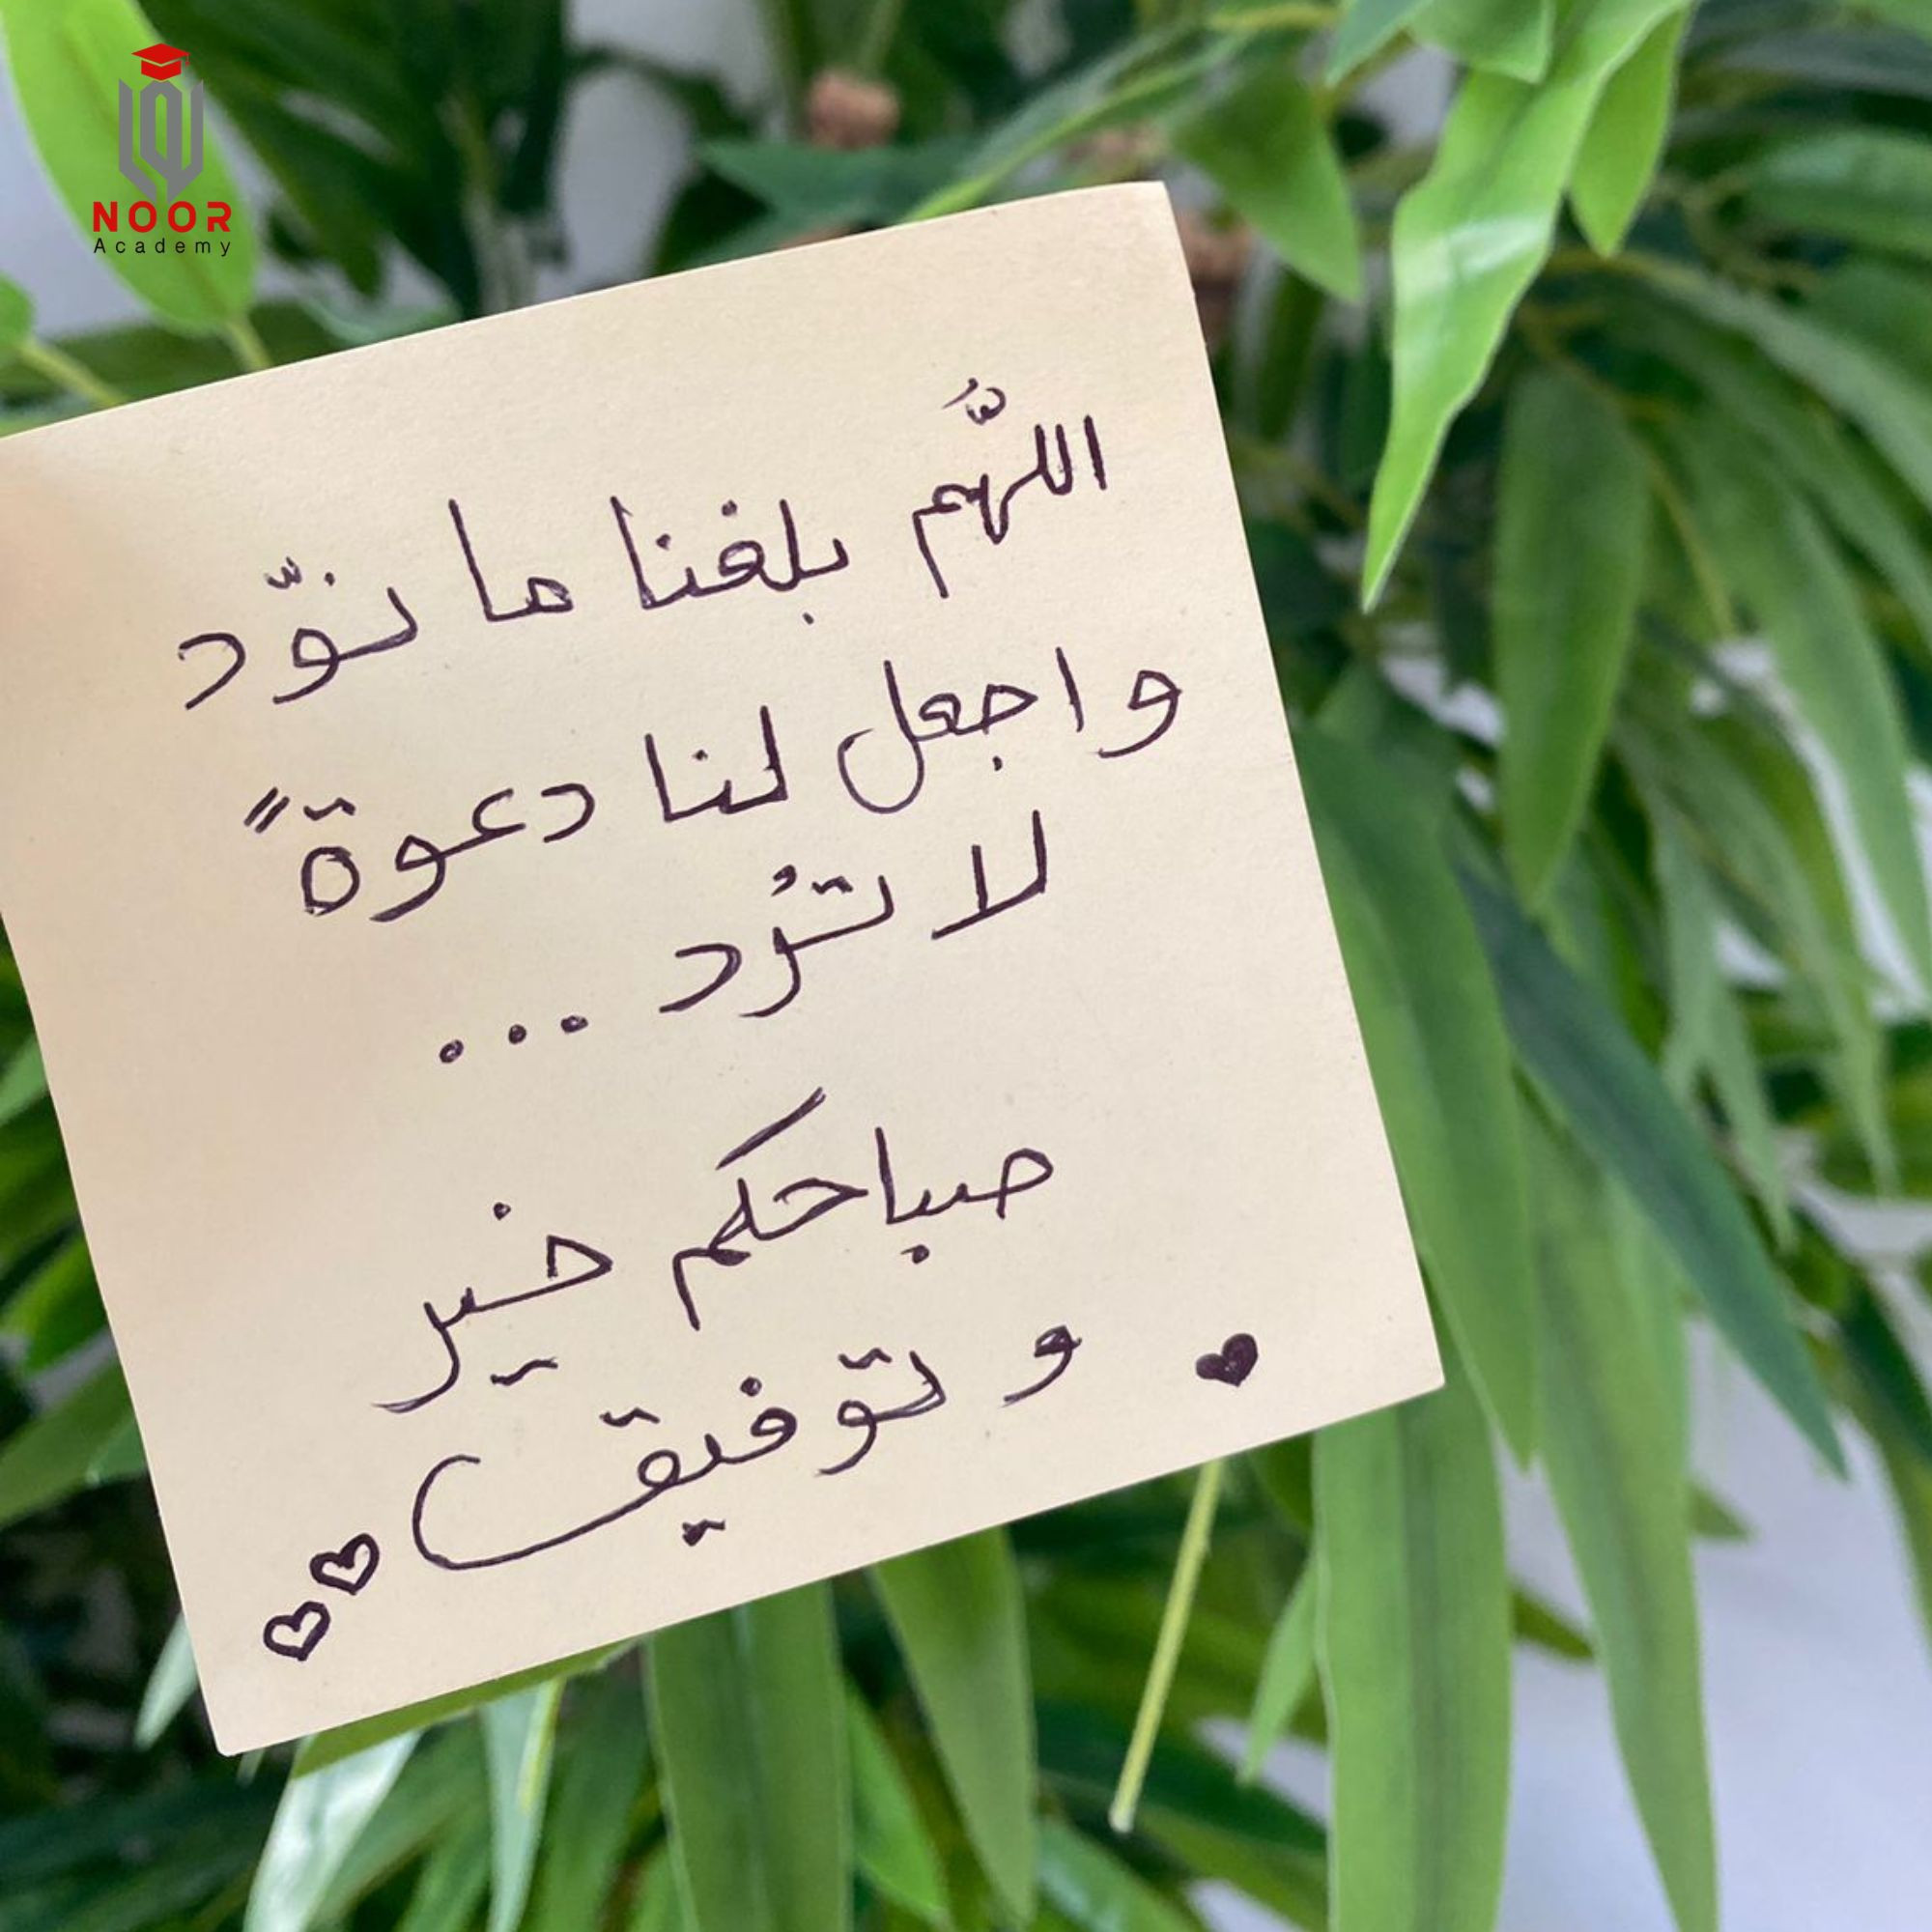 NOOR
Academy
اللهَّم بلغنا ما نوّد
واجعل لنا دعوةً
لا تُرد ...
صباحكم خير
و توفيق